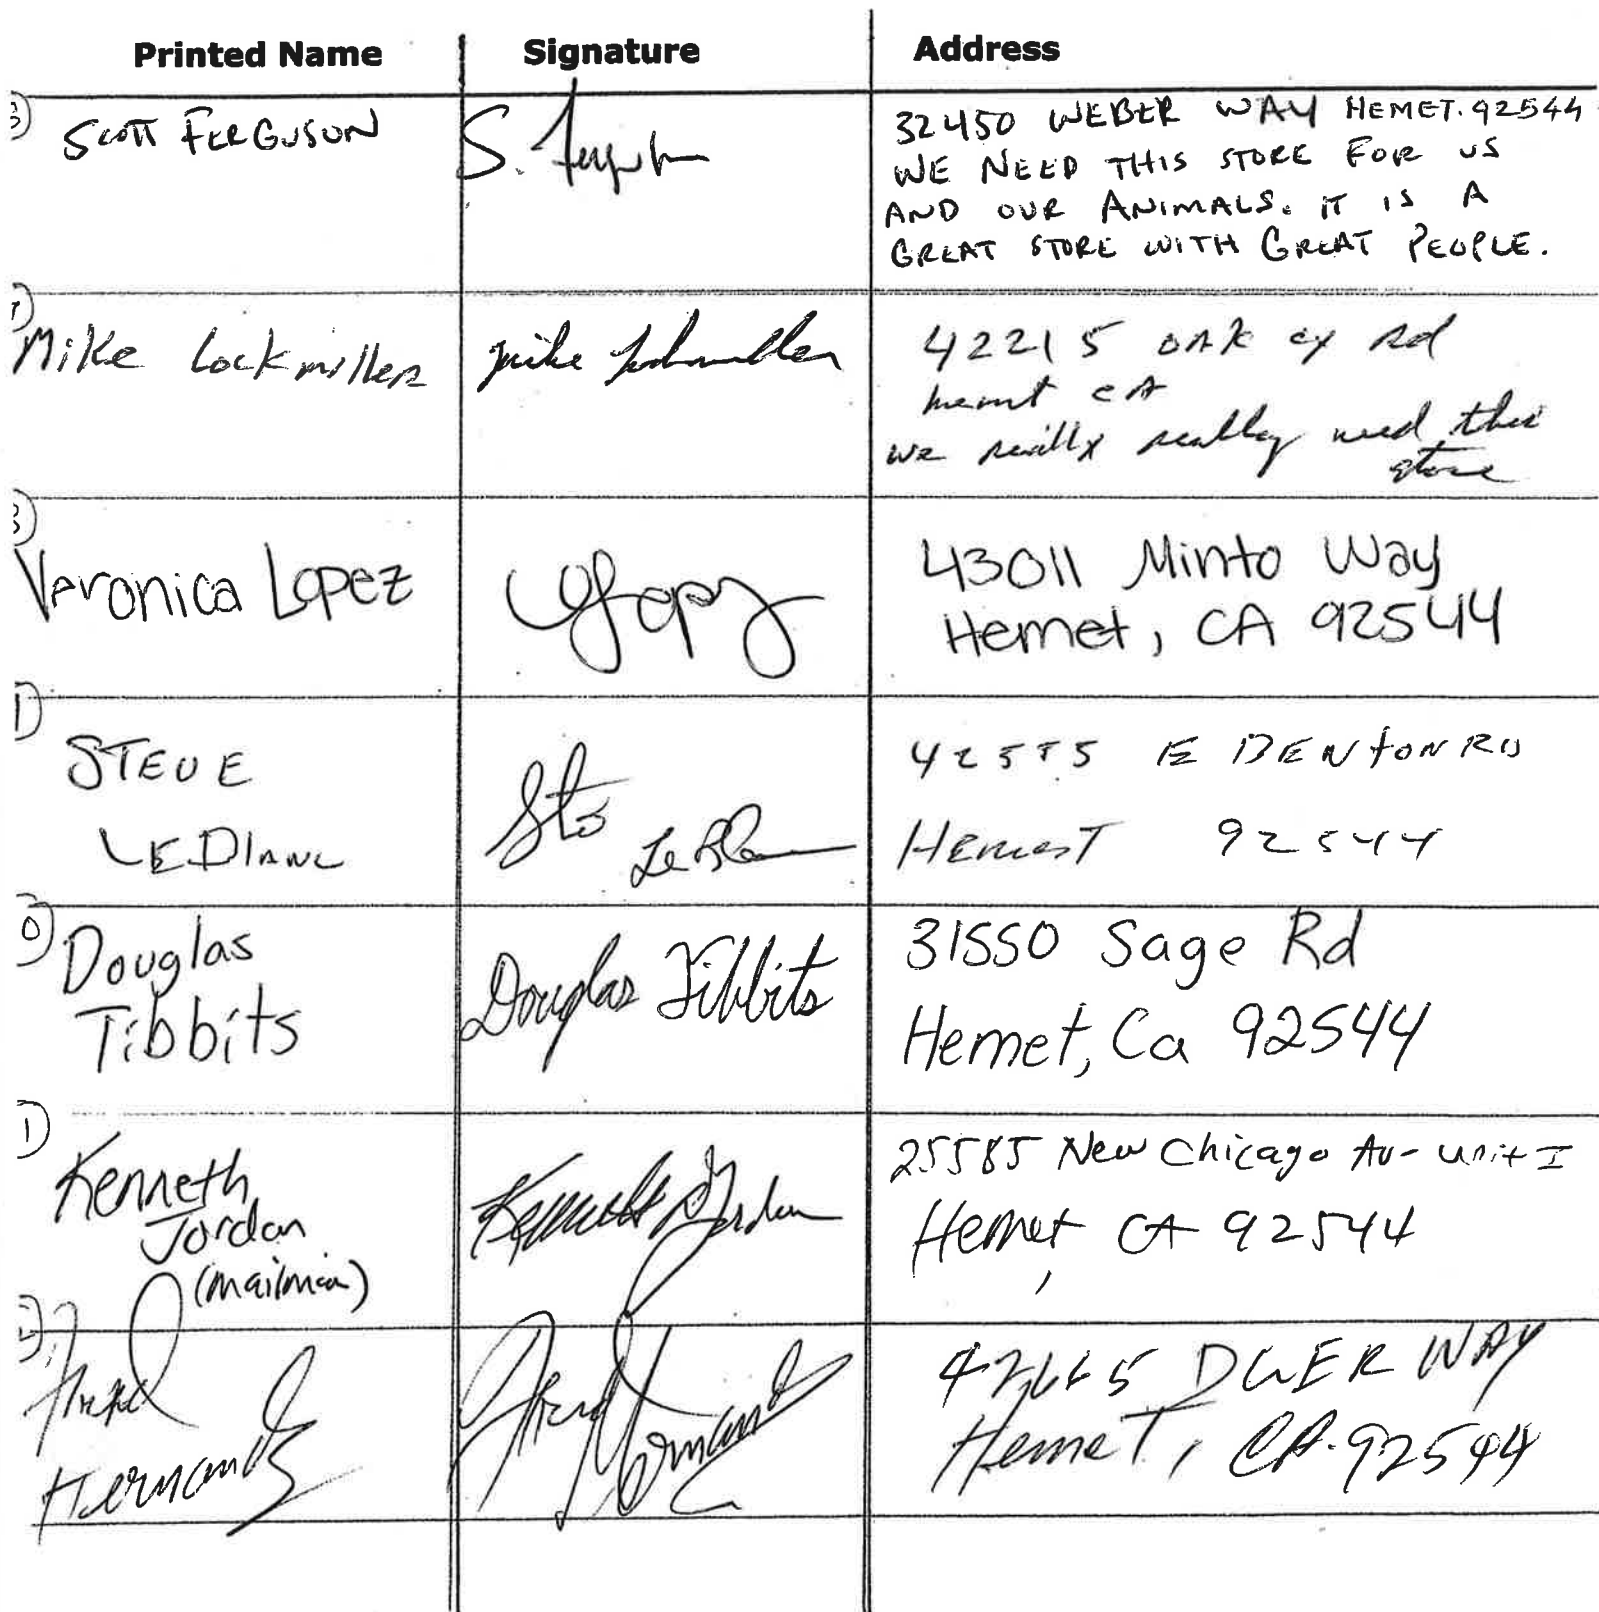 Printed Name Signature Address
SCOTT FERGUSON S. Ferguson 32450 WEBER WAY HEMET. 92544
WE NEED THIS STORE FOR US
AND OUR ANIMALS. IT IS A
GREAT STORE WITH GREAT PEOPLE.
Mike Lockmiller Mike Lockmiller 42215 OAK cy Rd
hemt CA
we really really need this
store
Veronica Lopez VLopez 43011 Minto Way
Hemet, CA 92544
STEVE 42575 E BENTON RD
LEBLANC Le Blanc HEMET 92544
Douglas Douglas Tibbits 31550 Sage Rd
Tibbits Hemet, Ca 92544
Kenneth Kenneth Jordan 25585 New Chicago Av- unit I
Jordan Hemet, CA 92544
(mailman)
Hernandez Hernandez 42665 WAY
Hemet, CA. 92544